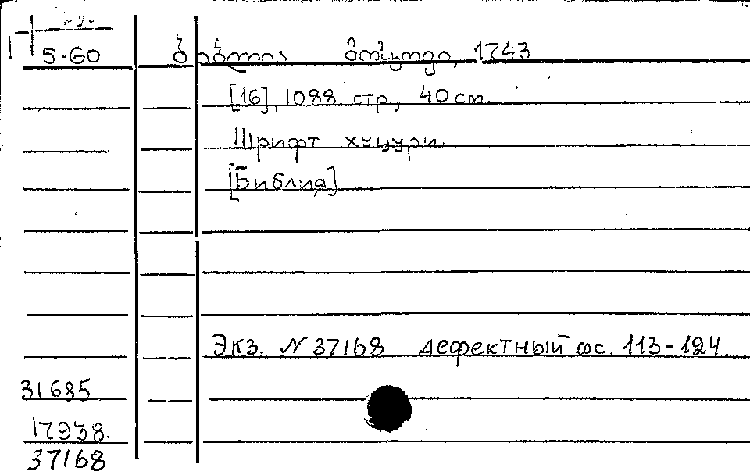 5-60
ბიბლია მოსკოვი, 1743
[16], 1088 стр, 40 см
Шрифт хуцури
[Библия]
Экз. № 37168 дефектный 113-124
31685
17938
37168